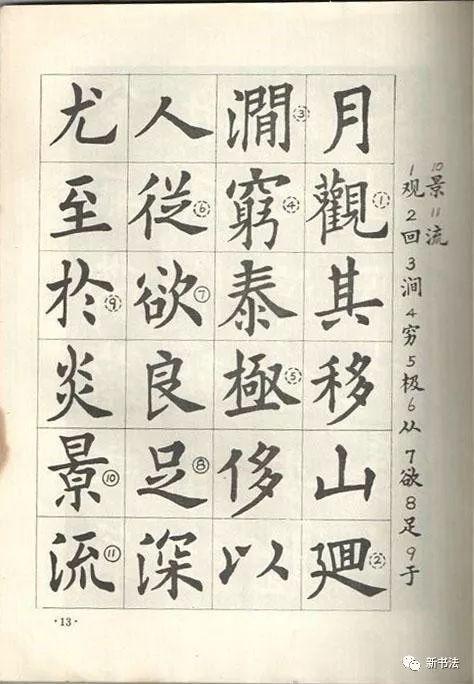 1观2回3涧4穷5极6从7欲8足9于
10景11流
月觀①其移山廻②
澗③窮④泰極⑤侈以
人從⑥欲⑦良足⑧深
尤至於⑨炎景⑩流⑪
·13·
新书法